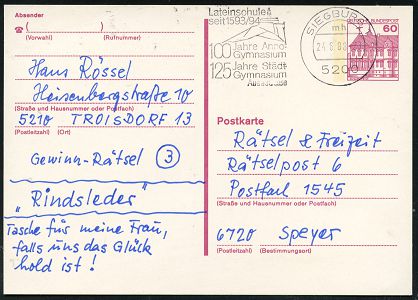 Absender
(Vorwahl) (Rufnummer)
Hans Rössel
Heisenbergstraße 10
(Straße und Hausnummer oder Postfach)
5210 TROISDORF 13
(Postleitzahl) (Ort)
Gewinn-Rätsel ③
"Rindsleder"
Tasche für meine Frau,
falls uns das Glück
hold ist!
Lateinschule
seit 1593/94
100 Jahre Anno-
Gymnasium
125 Jahre Städt
Gymnasium
SIEGBURG
mh
5200
DEUTSCHE BUNDESPOST
60
Postkarte
Rätsel & Freizeit
Rätselpost 6
Postfach 1545
(Straße und Hausnummer oder Postfach)
6720 Speyer
(Postleitzahl) (Bestimmungsort)